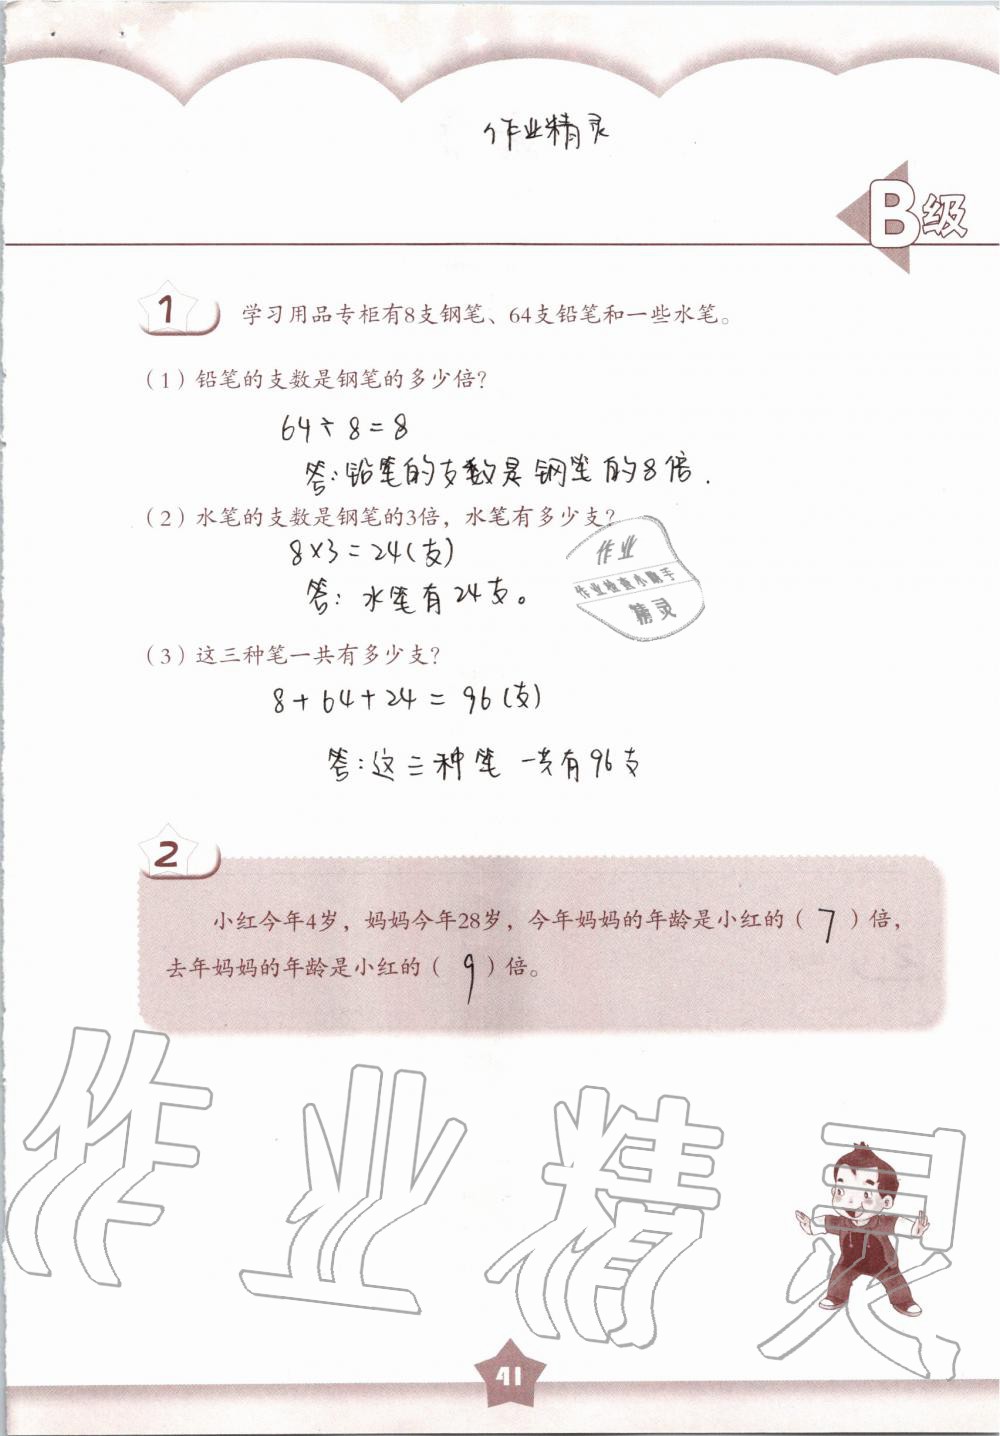 作业精灵
B级
1 学习用品专柜有8支钢笔、64支铅笔和一些水笔。
(1)铅笔的支数是钢笔的多少倍?
64÷8=8
答:铅笔的支数是钢笔的8倍.
(2)水笔的支数是钢笔的3倍,水笔有多少支?
8×3=24(支)
答:水笔有24支。
作业
作业检查小助手
精灵
(3)这三种笔一共有多少支?
8+64+24=96(支)
答:这三种笔一共有96支
2
小红今年4岁,妈妈今年28岁,今年妈妈的年龄是小红的(7)倍,
去年妈妈的年龄是小红的(9)倍。
作业精灵
41